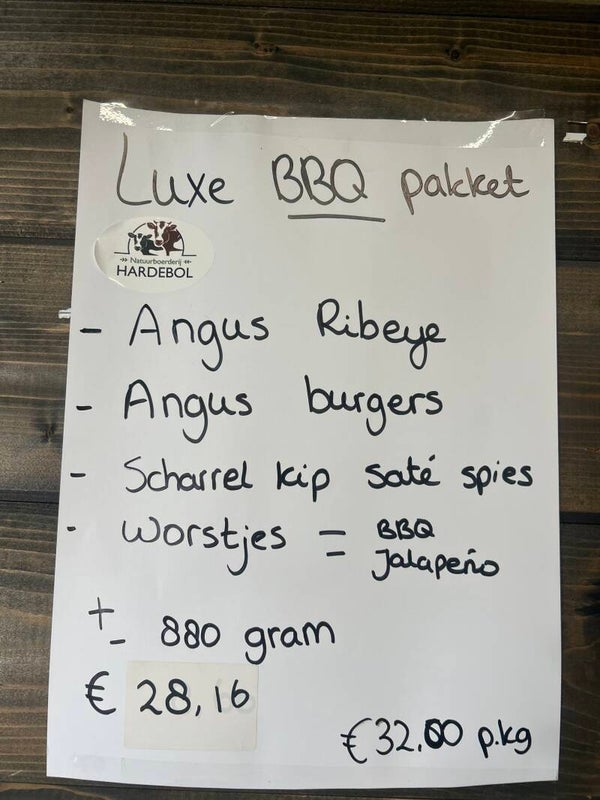 Luxe BBQ pakket
Natuurboerderij
HARDEBOL
- Angus Ribeye
- Angus burgers
- Scharrel kip saté spies
- Worstjes = BBQ
Jalapeño
+- 880 gram
€ 28,16
€32.00 p.kg